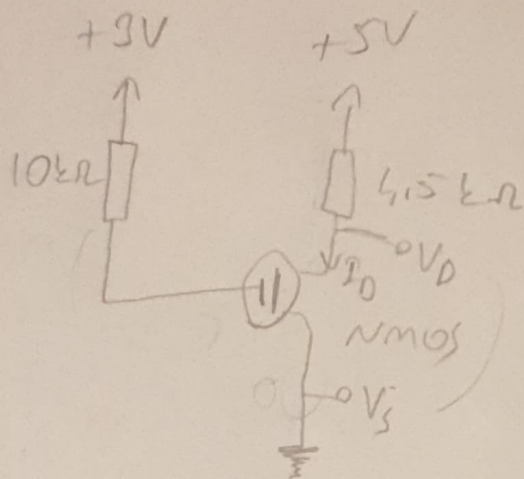 +3V +5V
10kΩ 4,5 kΩ
I_D V_D
NMOS
V_S